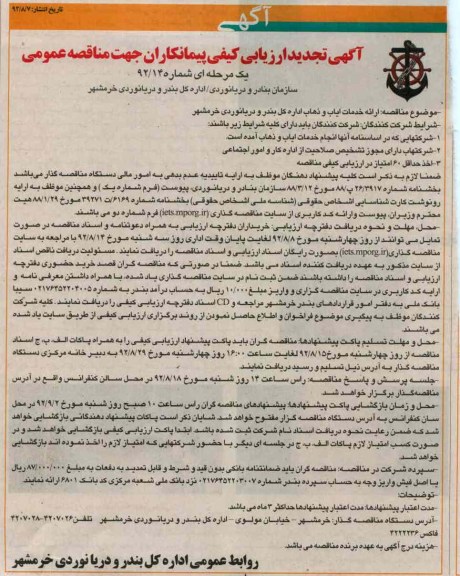 آگهی
تاریخ انتشار: ۹۲/۸/۷
آگهی تجدید ارزیابی کیفی پیمانکاران جهت مناقصه عمومی
یک مرحله ای شماره ۹۲/۱۳
سازمان بنادر و دریانوردی/ اداره کل بندر و دریانوردی خرمشهر
-موضوع مناقصه: ارائه خدمات ایاب و ذهاب اداره کل بندر و دریانوردی خرمشهر
-شرایط شرکت کنندگان: شرکت کنندگان باید دارای کلیه شرایط زیر باشند:
۱-شرکتهایی که در اساسنامه آنها انجام خدمات ایاب و ذهاب آمده است
۲-شرکتهاب دارای مجوز تشخیص صلاحیت از اداره کار و امور اجتماعی
۳-اخذ حداقل ۶۰ امتیاز در ارزیابی کیفی مناقصه
ضمنا لازم به ذکر است کلیه پیشنهاد دهنگان موظف به ارایه تاییدیه عدم بدهی به امور مالی دستگاه مناقصه گذار می‌باشد
بخشنامه شماره ۲۶/۳۹۱۷/ب/۸۸ مورخ ۸۸/۳/۱۲ سازمان بنادر و دریانوردی، پیوست (فرم شماره یک) و همچنین موظف به ارایه
رونوشت کارت شناسایی اشخاص حقوقی (شناسه ملی اشخاص حقوقی) بخشنامه شماره ۶۱۶۹/ت ۳۹۲۷۱ مورخ ۸۸/۱/۲۹ هیت
محترم وزیران، پیوست و ارائه کد کاربری از سایت مناقصه گذاری (iets.mporg.ir) فرم شماره دو می باشند.
-محل، مهلت و نحوه دریافت دفترچه ارزیابی: خریداران دفترچه ارزیابی به همراه دعوتنامه و اسناد مناقصه در صورت
تمایل می توانند از روز چهارشنبه مورخ ۹۲/۸/۸ لغایت پایان وقت اداری روز سه شنبه مورخ ۹۲/۸/۱۴ با مراجعه به سایت
مناقصه گذاری(iets.mporg.ir) بصورت رایگان اسناد ارزیابی و اسناد مناقصه را دریافت نمایند. مسئولیت دریافت ناقص اسناد
از سایت مذکور به عهده دریافت کننده اسناد می باشد. ضمنا در صورتی که مناقصه گران قصد خرید حضوری دفترچه
ارزیابی و اسناد مناقصه را داشته باشند ضمن ثبت نام در سایت مناقصه گذاری یاد شده، با همراه داشتن معرفی نامه و
ارایه کد کاربری در سایت مناقصه گزاری و واریز مبلغ ۱۰/۰۰۰ ریال به حساب درآمد بندر به شماره ۰۲۱۷۶۴۵۲۲۰۴۰۰۵ سیبا
بانک ملی به دفتر امور قراردادهای بندر خرمشهر مراجعه و CD اسناد دفترچه ارزیابی کیفی را دریافت نمایند. کلیه شرکت
کنندگان موظف به پیگیری موضوع فراخوان و اطلاع حاصل نمودن از روند برگزاری ارزیابی کیفی از طریق سایت یاد شده
می باشند
-محل و مهلت تسلیم پاکت پیشنهادها: مناقصه گران باید پاکت پیشنهاد ارزیابی کیفی را به همراه پاکات الف، ب، ج اسناد
مناقصه از روز چهارشنبه مورخ ۹۲/۸/۱۵ لغایت ساعت ۱۶:۰۰ روز چهارشنبه مورخ ۹۲/۸/۲۹ به دبیر خانه مرکزی دستگاه
مناقصه گذار به آدرس ذیل تسلیم و رسید دریافت نمایند.
-جلسه پرسش و پاسخ مناقصه: راس ساعت ۱۳ روز شنبه مورخ ۹۲/۸/۱۸ در محل سالن کنفرانس واقع در آدرس
مناقصه‌گذار برگزار خواهد شد.
-محل و زمان بازگشایی پاکت پیشنهادها: پیشنهادهای مناقصه گران راس ساعت ۱۰ صبح روز شنبه مورخ ۹۲/۹/۲ در محل
سان کنفرانس به آدرس دستگاه مناقصه گزار مفتوح خواهد شد. شایان ذکر است پاکات پیشنهاد دهندگانی بازگشایی خواهد
شد که ضمن رعایت نحوه دریافت اسناد نام شرکت ثبت شده باشد. ابتدا پاکت ارزیابی کیفی بازگشایی خواهد شد و در
صورت کسب امتیاز لازم پاکات الف، ب، ج در جلسه ای دیگر با حضور شرکتهایی که امتیاز لازم را اخذ نموده اند بازگشایی
خواهد شد.
-سپرده شرکت در مناقصه: مناقصه گران باید ضمانتنامه بانکی بدون قید و شرط و قابل تمدید به دفعات به مبلغ ۸۷/۰۰۰/۰۰۰ ریال
یا اصل فیش واریز وجه به حساب سپرده بندر شماره ۰۲۱۷۶۴۵۲۲۰۳۰۰۷ نزد بانک ملی شعبه مرکزی کد بانک ۶۸۰۱ ارائه نمایند
-توضیحات:
-مدت اعتبار پیشنهادها: مدت اعتبار پیشنهادها حداکثر ۳ ماه می باشد.
-آدرس دستگاه مناقصه گذار: خرمشهر – خیابان مولوی – اداره کل بندر و دریانوردی خرمشهر تلفن ۴۲۰۷۰۲۶-۴۲۰۷۰۲۸
فاکس ۴۲۲۲۲۳۶
-هزینه درج آگهی به عهده برنده مناقصه می باشد.
روابط عمومی اداره کل بندر و دریا نوردی خرمشهر